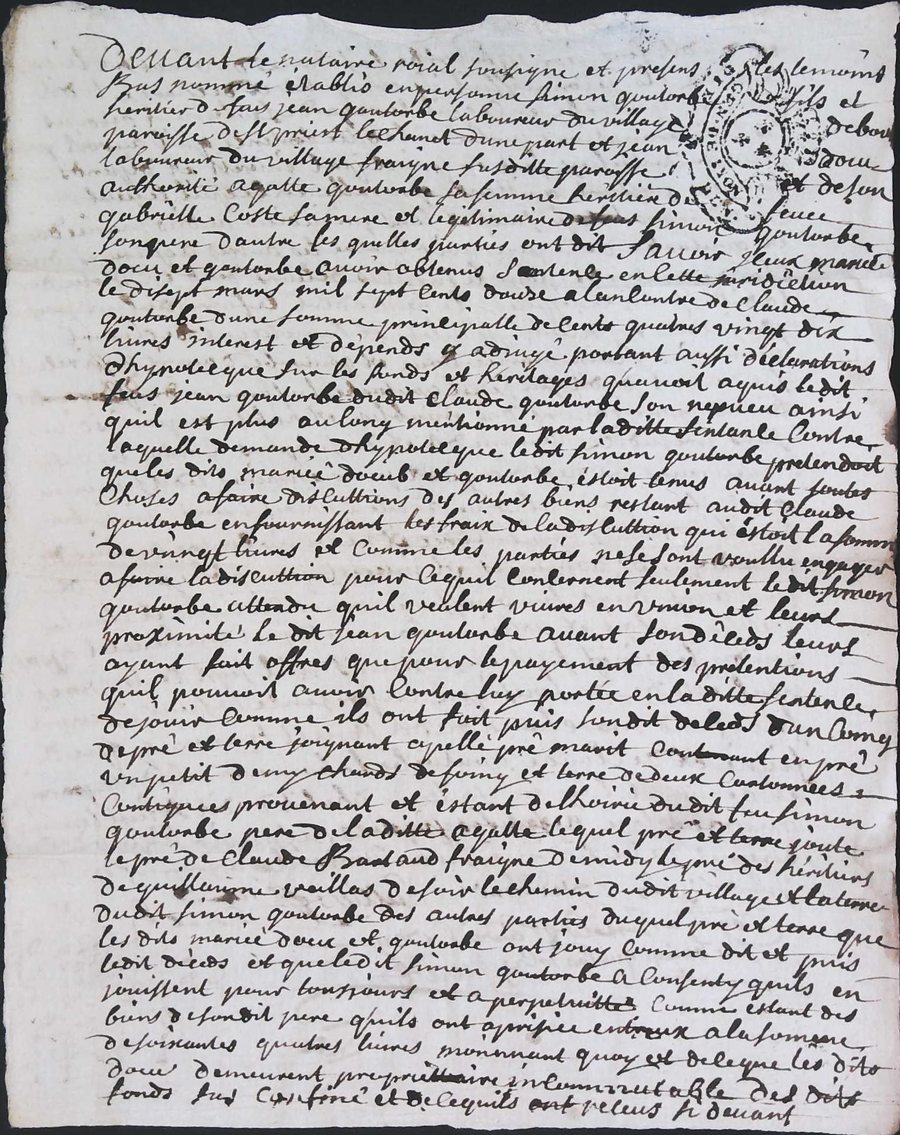 Devant le notaire roial sousigne et presens les temoins
Bas nommé établis en personne simon goutorbe fils et
héritier de feus jean goutorbe laboureur du village debou
paroisse de st priest lechanet dune part et jean doeu
laboureur du village fraigne susditte paroisse et de son
authorité agatte goutorbe sa femme héritiere de feue
gabrielle Coste sa mere et legitimaire de feus simon goutorbe
son pere dautre les quelles parties ont dit sauoir yceux mariée
doeu et goutorbe auoir obtenus sentence en cette juridiction
le disept mars mil sept cents douse alencontre de Claude
goutorbe dune somme principalle de cents quatres vingt dix
liures interest et depends y adjugé portant aussi déclarations
dhypoteeque sur les fonds et héritages quauoit aquis ledit
feus jean goutorbe dudit Claude goutorbe son nepueu ainsi
quil est plus aulong méntionné par laditte sentance Contre
laquelle demande dhypotecque ledit simon goutorbe pretendoit
que les dits mariéé doeub et goutorbe éstoit tenus auant toutes
Choses afaire discuttions des autres biens restant audit Claude
goutorbe en fournissant les fraix de ladiscuttion qui éstoit la somme
de vingt liures et Comme les parties ne se sont voullu engager
afaire ladiscuttion pour cequil concernent seulement ledit simon
goutorbe attendu quil veulent viures en vnion et leurs
proximité le dit jean goutorbe auant son décéds leurs
ayant fait offres que pour le payement des pretentions
quil pouuoit auoir Contre luy portée en laditte sentence
de jouir Comme ils ont fait puis sondit deceds dun Coing
de pré et terre joignant apellé pré marit Contenant en pré
vn petit demy chards de foing et terre de deux Cartonnées
Contigues prouenant et éstant de lhoirie dudit feu simon
goutorbe pere de laditte agatte lequel pré et terre joute
le pré de Claude Bartaud fraigne de midy le pré des héritiers
de guillaume veillas de soir le chemin dudit village et la terre
dudit simon goutorbe des autres parties duquel pré et terre que
les dits mariéé doeu et goutorbe ont jouy Comme dit et puis
ledit décéds et que ledit simon goutorbe a Consenty quils en
jouissent pour tousjours et a perpetuitté Comme estant des
biens de sondit pere quils ont aprisiée entreux a la somme
de soixantes quatres liures moiennant quoy et de ce que les dits
doeu demeurent propriéttaire incommuttable des dits
fonds sus Confiné et de cequils ont receus si deuant